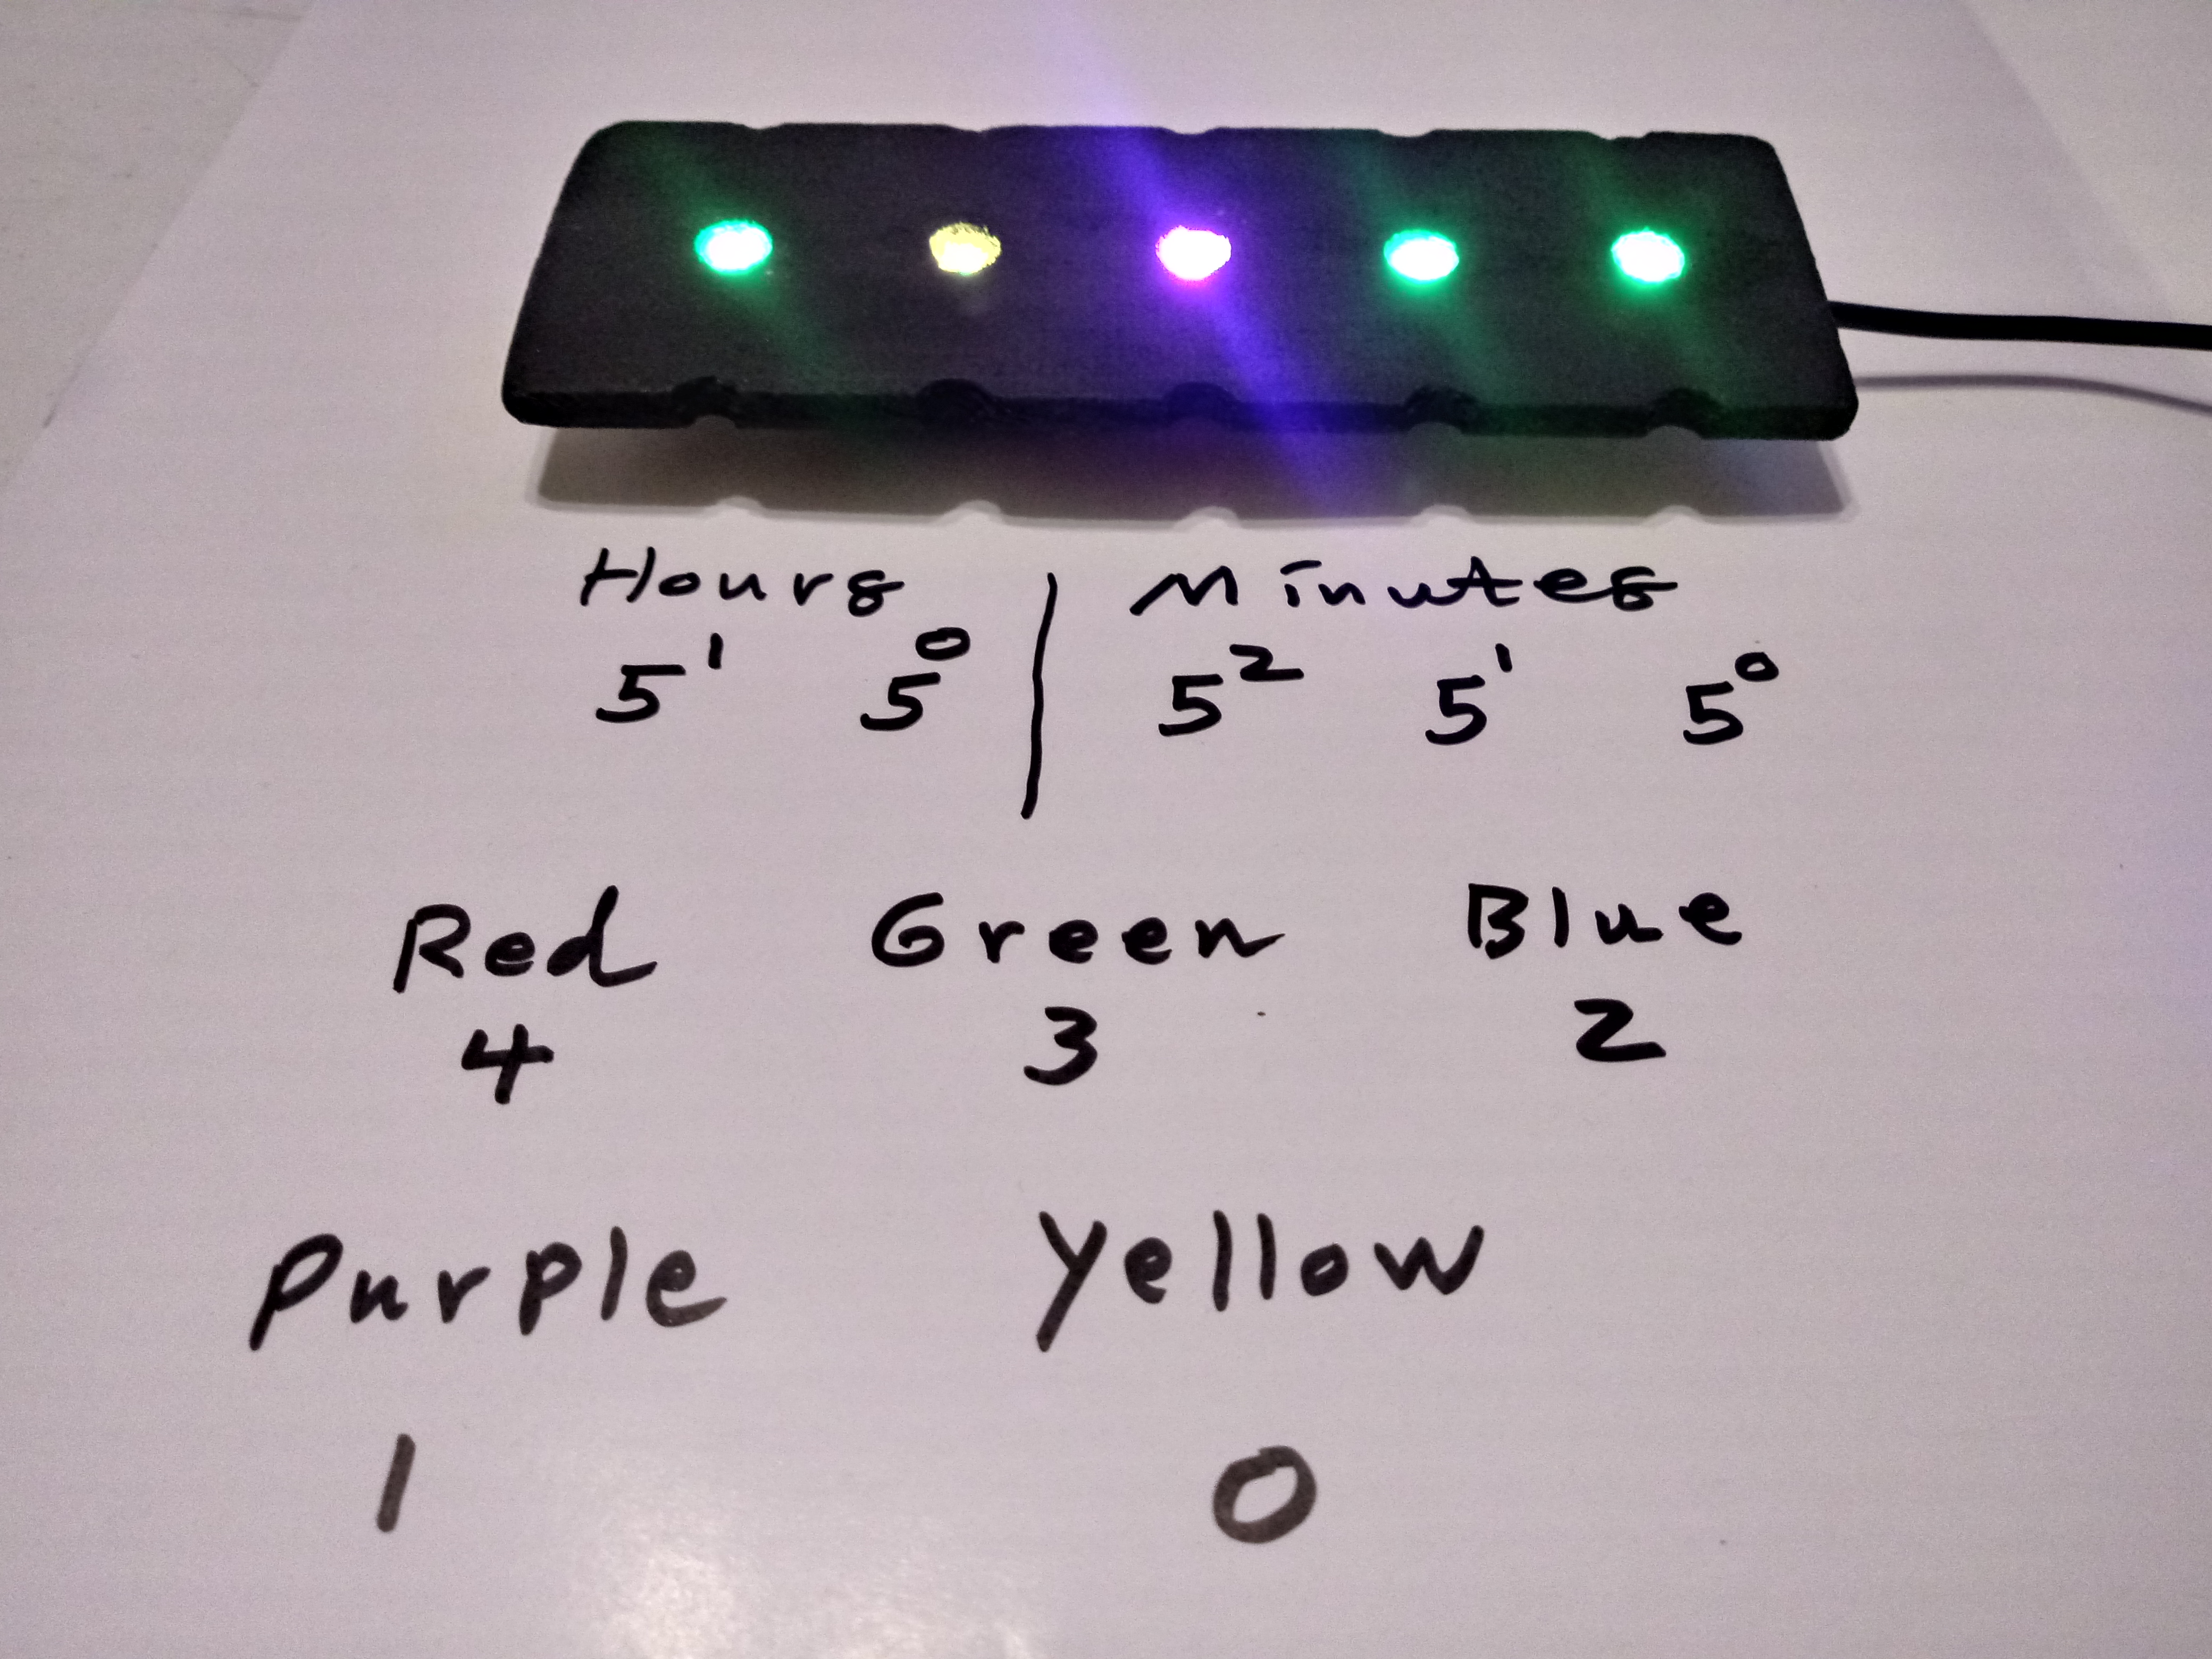 Hours | Minutes
5¹ 5⁰ | 5² 5¹ 5⁰
Red Green Blue
4 3 2
Purple Yellow
1 0